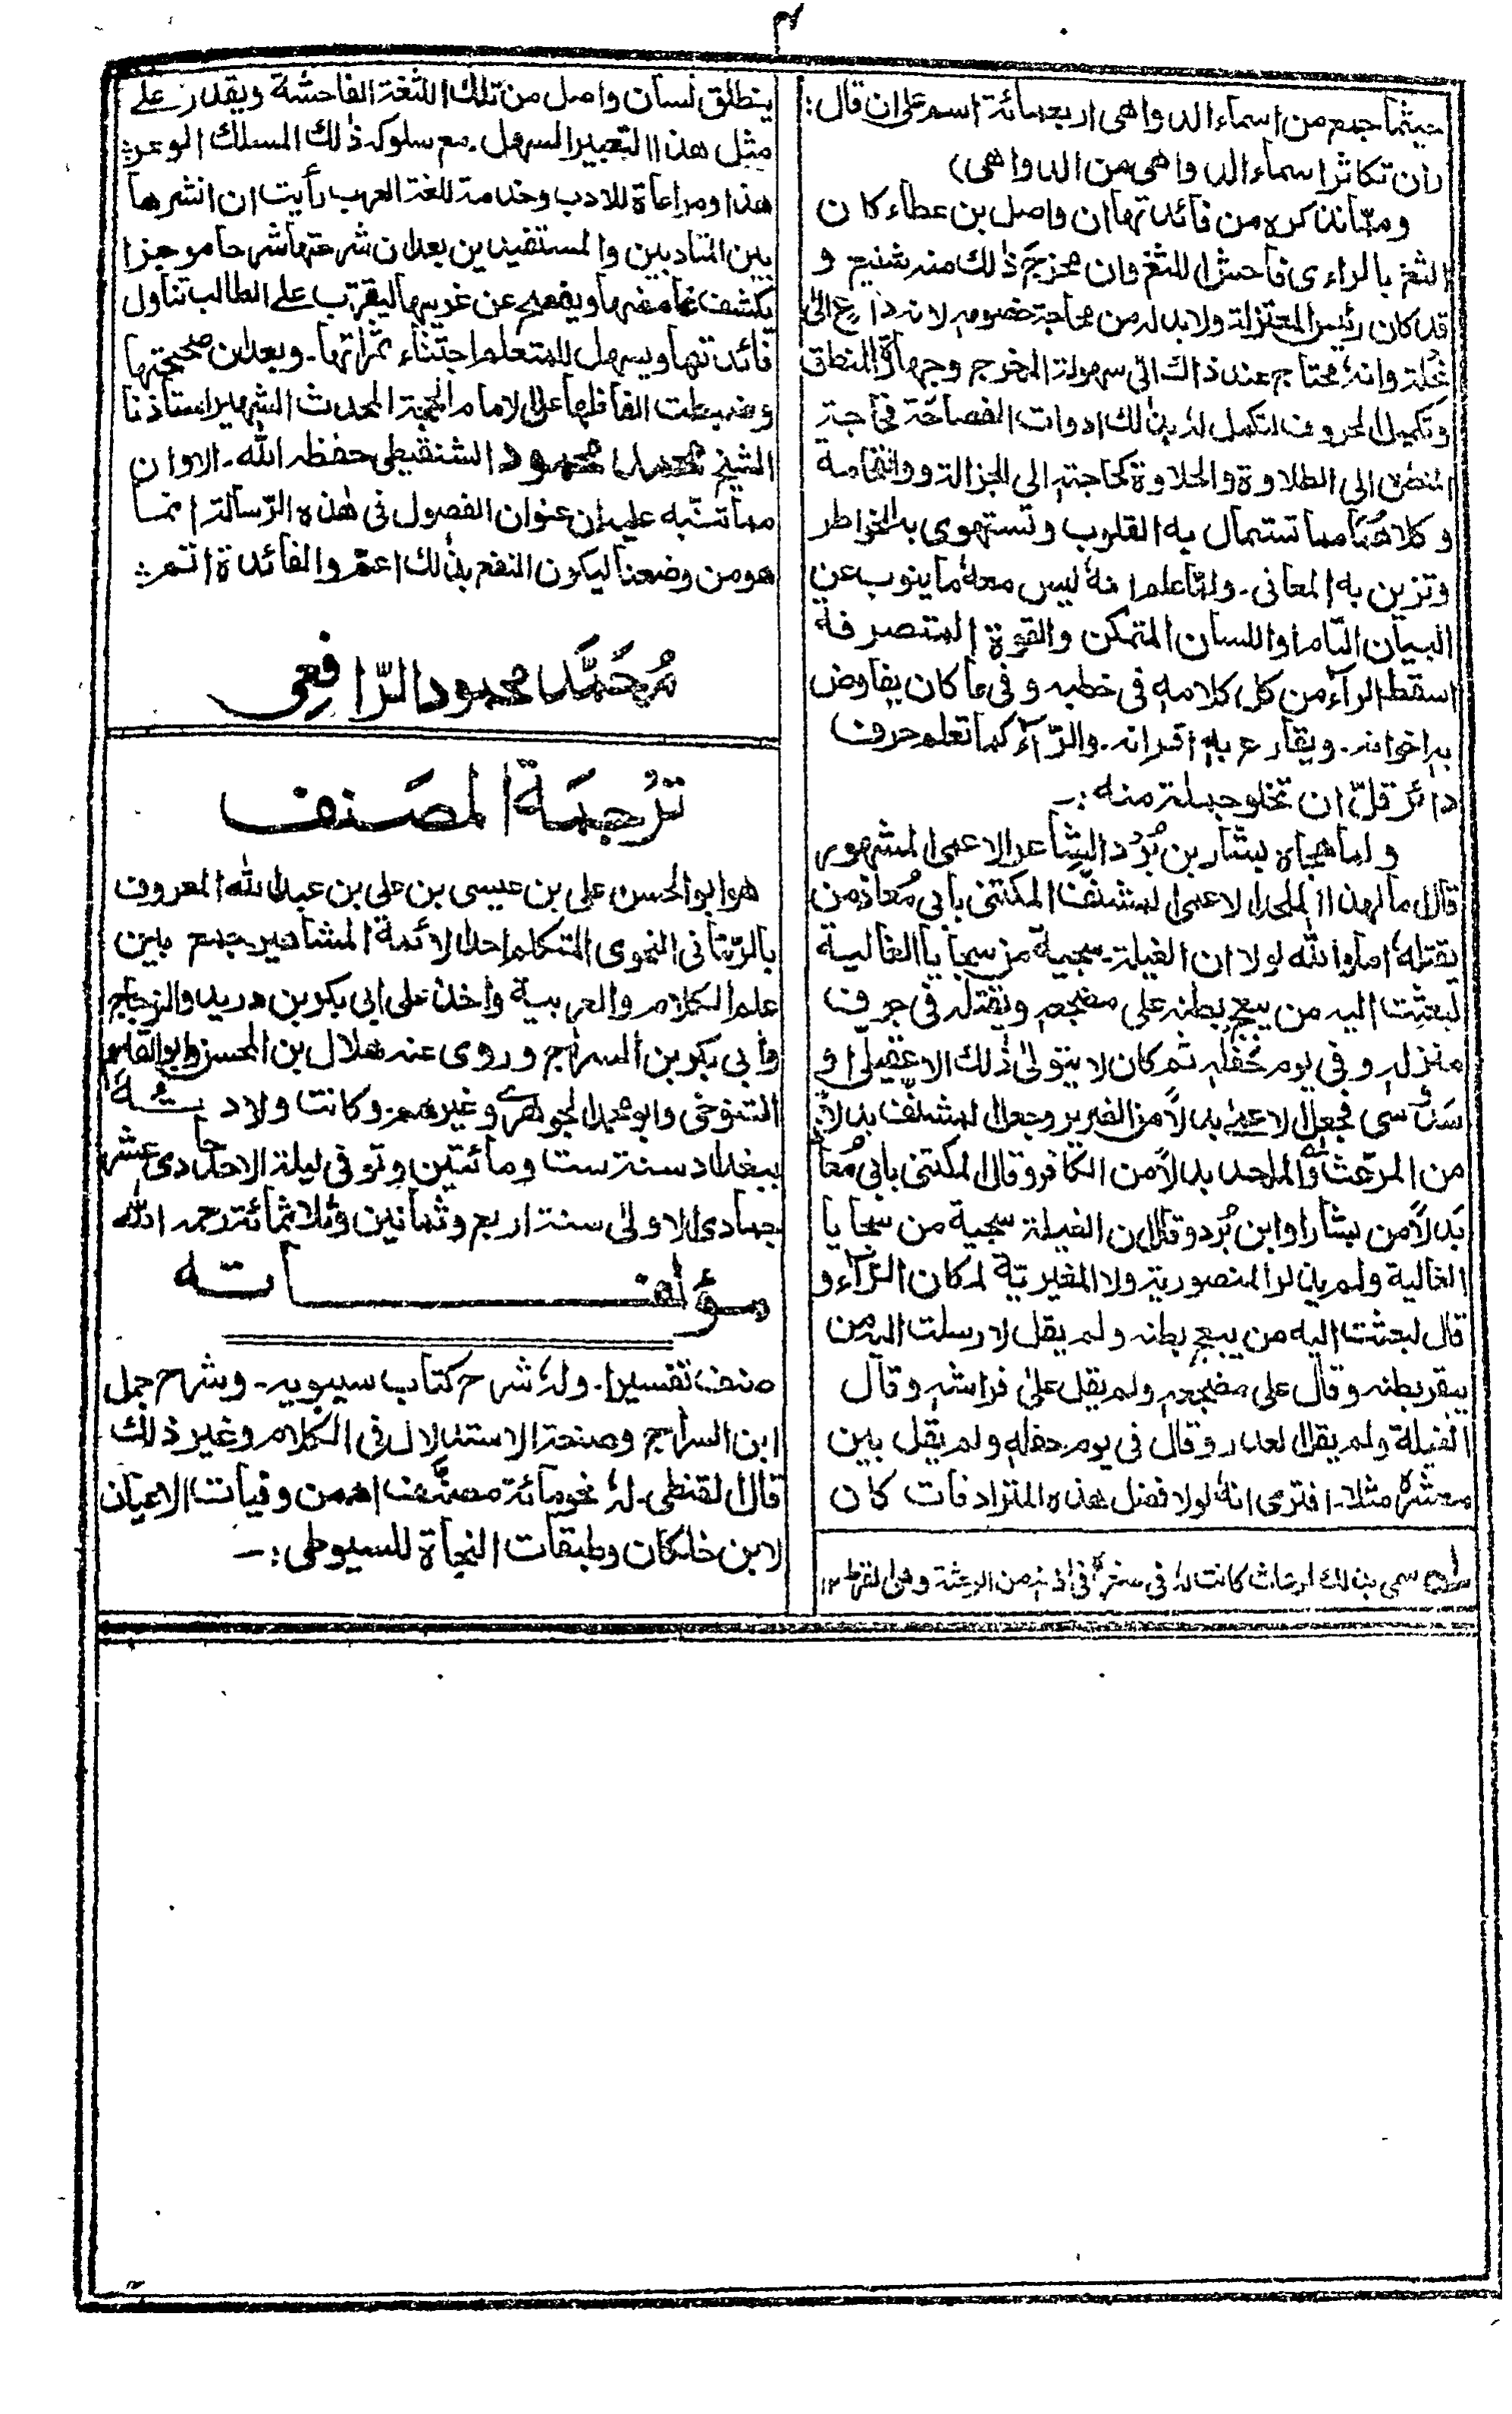 ٣
حيثما جمع من اسماء الدواهى اربعمائة اسم على ان قال:
(ان تكاثر اسماء الدواهى من الدواهى)
ومما نذكره من فائدتها ان واصل بن عطاء كان
الثغ بالراء ى فاحش اللثغ فان مخرج ذلك منه شنيع و
قد كان رئيس المعتزلة ولا بد له من محاجة خصومه لانه داع الى
نحلة وانه محتاج عند ذاك الى سهولة المخرج وجهارة النطق
وتكميل الحروف لتكمل له بذلك ادوات الفصاحة فحاجة
المنطق الى الطلاوة والحلاوة كحاجته الى الجزالة ووالفخامة
وكلاهما مما تستمال به القلوب وتستهوى به الخواطر
وتزين به المعانى۔ ولما علم انه ليس معه ما ينوب عن
البيان التام واللسان المتمكن والقوة المتصرفة
اسقط الرآء من كل كلامه فى خطبه وفى ما كان يفاوض
به اخوانه۔ ويقارع به اقرانه۔ والرّآء كما تعلم حرف
دائر قلّ ان تخلو جملة منه:۔
ولما هجاه بشار بن بُرْد الشاعر الاعمى المشهور
قال ما لهذا الملحد الاعمى المشنّف المكتنى بابى مُعاذ من
يقتله، اما والله لولا ان الغيلة سجية من سجايا الغالية
لبعثت اليه من يبعج بطنه على مضجعه ويقتله فى جوف
منزله وفى يوم حَفله ثم كان لا يتولى ذلك الا عقيلى او
سدوسى فجعل الاعمى بدلاً من الضرير وجعل المشنّف بدلاً
من المرعّث والملحد بدلاً من الكافر وقال المكتنى بابى مُعاذ
بَدلاً من بشار او ابن بُرد وقال ان الغيلة سجية من سجايا
الغالية ولم يذكر المنصورية ولا المغيريّة لمكان الرّآء و
قال لبعثت اليه من يبعج بطنه ولم يقل لارسلت اليه من
يبقر بطنه وقال على مضجعه ولم يقل على فراشه وقال
الغيلة ولم يقل الغدر وقال فى يوم حفله ولم يقل بين
معشره مثلا۔ افترى انه لولا فضل هذه المترادفات كان
سمى بذلك لرعاث كانت له فى صغره فى اذنه من الرعثة وهى القرط ١٢
ينطلق لسان واصل من تلك اللثغة الفاحشة ويقدر على
مثل هذا التعبير السهل۔ مع سلوكه ذلك المسلك الوعر:
هذا ومراعاة للادب وخدمة للغة العرب رأيت ان انشرها
بين المتادبين والمستفيدين بعد ان شرحتها شرحا موجزا
يكشف غامضها ويفصح عن غريبها ليقرّب على الطالب تناول
فائدتها ويسهل للمتعلم اجتناء ثمراتها۔ وبعد ان صححتها
وضبطت الفاظها على الامام الحجة المحدث الشهير استاذنا
الشيخ محمد محمود الشنقيطى حفظه الله۔ الا وان
مما تنبّه عليه ان عنوان الفصول فى هذه الرّسالة انما
هو من وضعنا ليكون النفع بذلك اعمّ والفائدة اتم:
مُحَمَّد محمود الرّافعى
تَرْجَمَة المصَنف
هو ابو الحسن على بن عيسى بن على بن عبد الله المعروف
بالرّمّانى النحوى المتكلم احد الائمة المشاهير جمع بين
علم الكلام والعربية واخذ على ابى بكر بن دريد والزجاج
وابى بكر بن السراج وروى عنه هلال بن المحسن وابو القاسم
التنوخى وابو محمد الجوهرى وغيرهم وكانت ولادته
ببغداد سنة ست ومائتين وتوفى ليلة الاحد حادى عشر
جمادى الاولى سنة اربع وثمانين وثلاثمائة رحمه الله
مؤلفاته
صنف تفسيرا۔ وله شرح كتاب سيبويه۔ وشرح جمل
ابن السراج وصنعة الاستدلال فى الكلام وغير ذلك
قال القفطى۔ له نحو مائة مصنّف اهـ من وفيات الاعيان
لابن خلكان وطبقات النحاة للسيوطى:۔